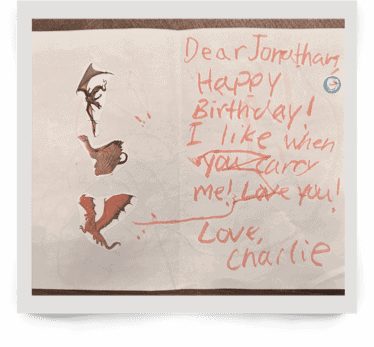 Dear Jonathan,
Happy
Birthday!
I like when
you carry
me! Love you!
Love,
Charlie